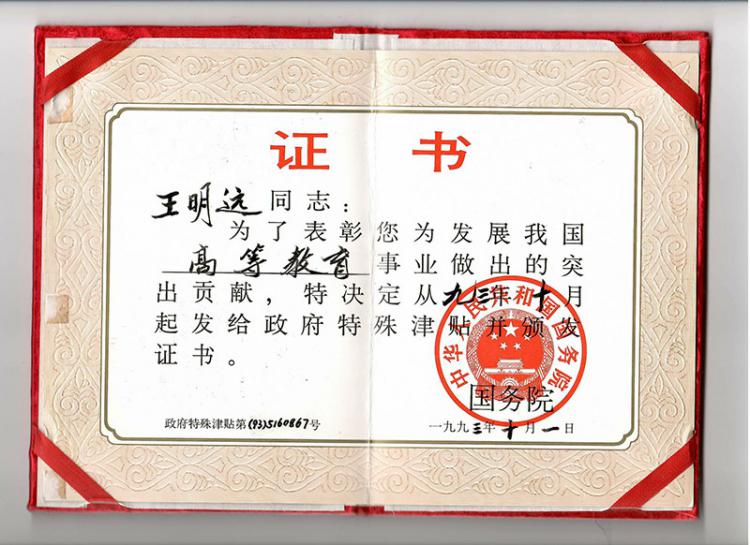 证书
王明远同志：
为了表彰您为发展我国
高等教育事业做出的突
出贡献，特决定从九三年十月
起发给政府特殊津贴并颁发
证书。
中华人民共和国国务院
国务院
政府特殊津贴第(93)5160867号
一九九三年十月一日